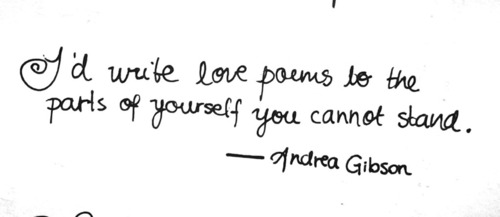 I'd write love poems to the
parts of yourself you cannot stand.
— Andrea Gibson